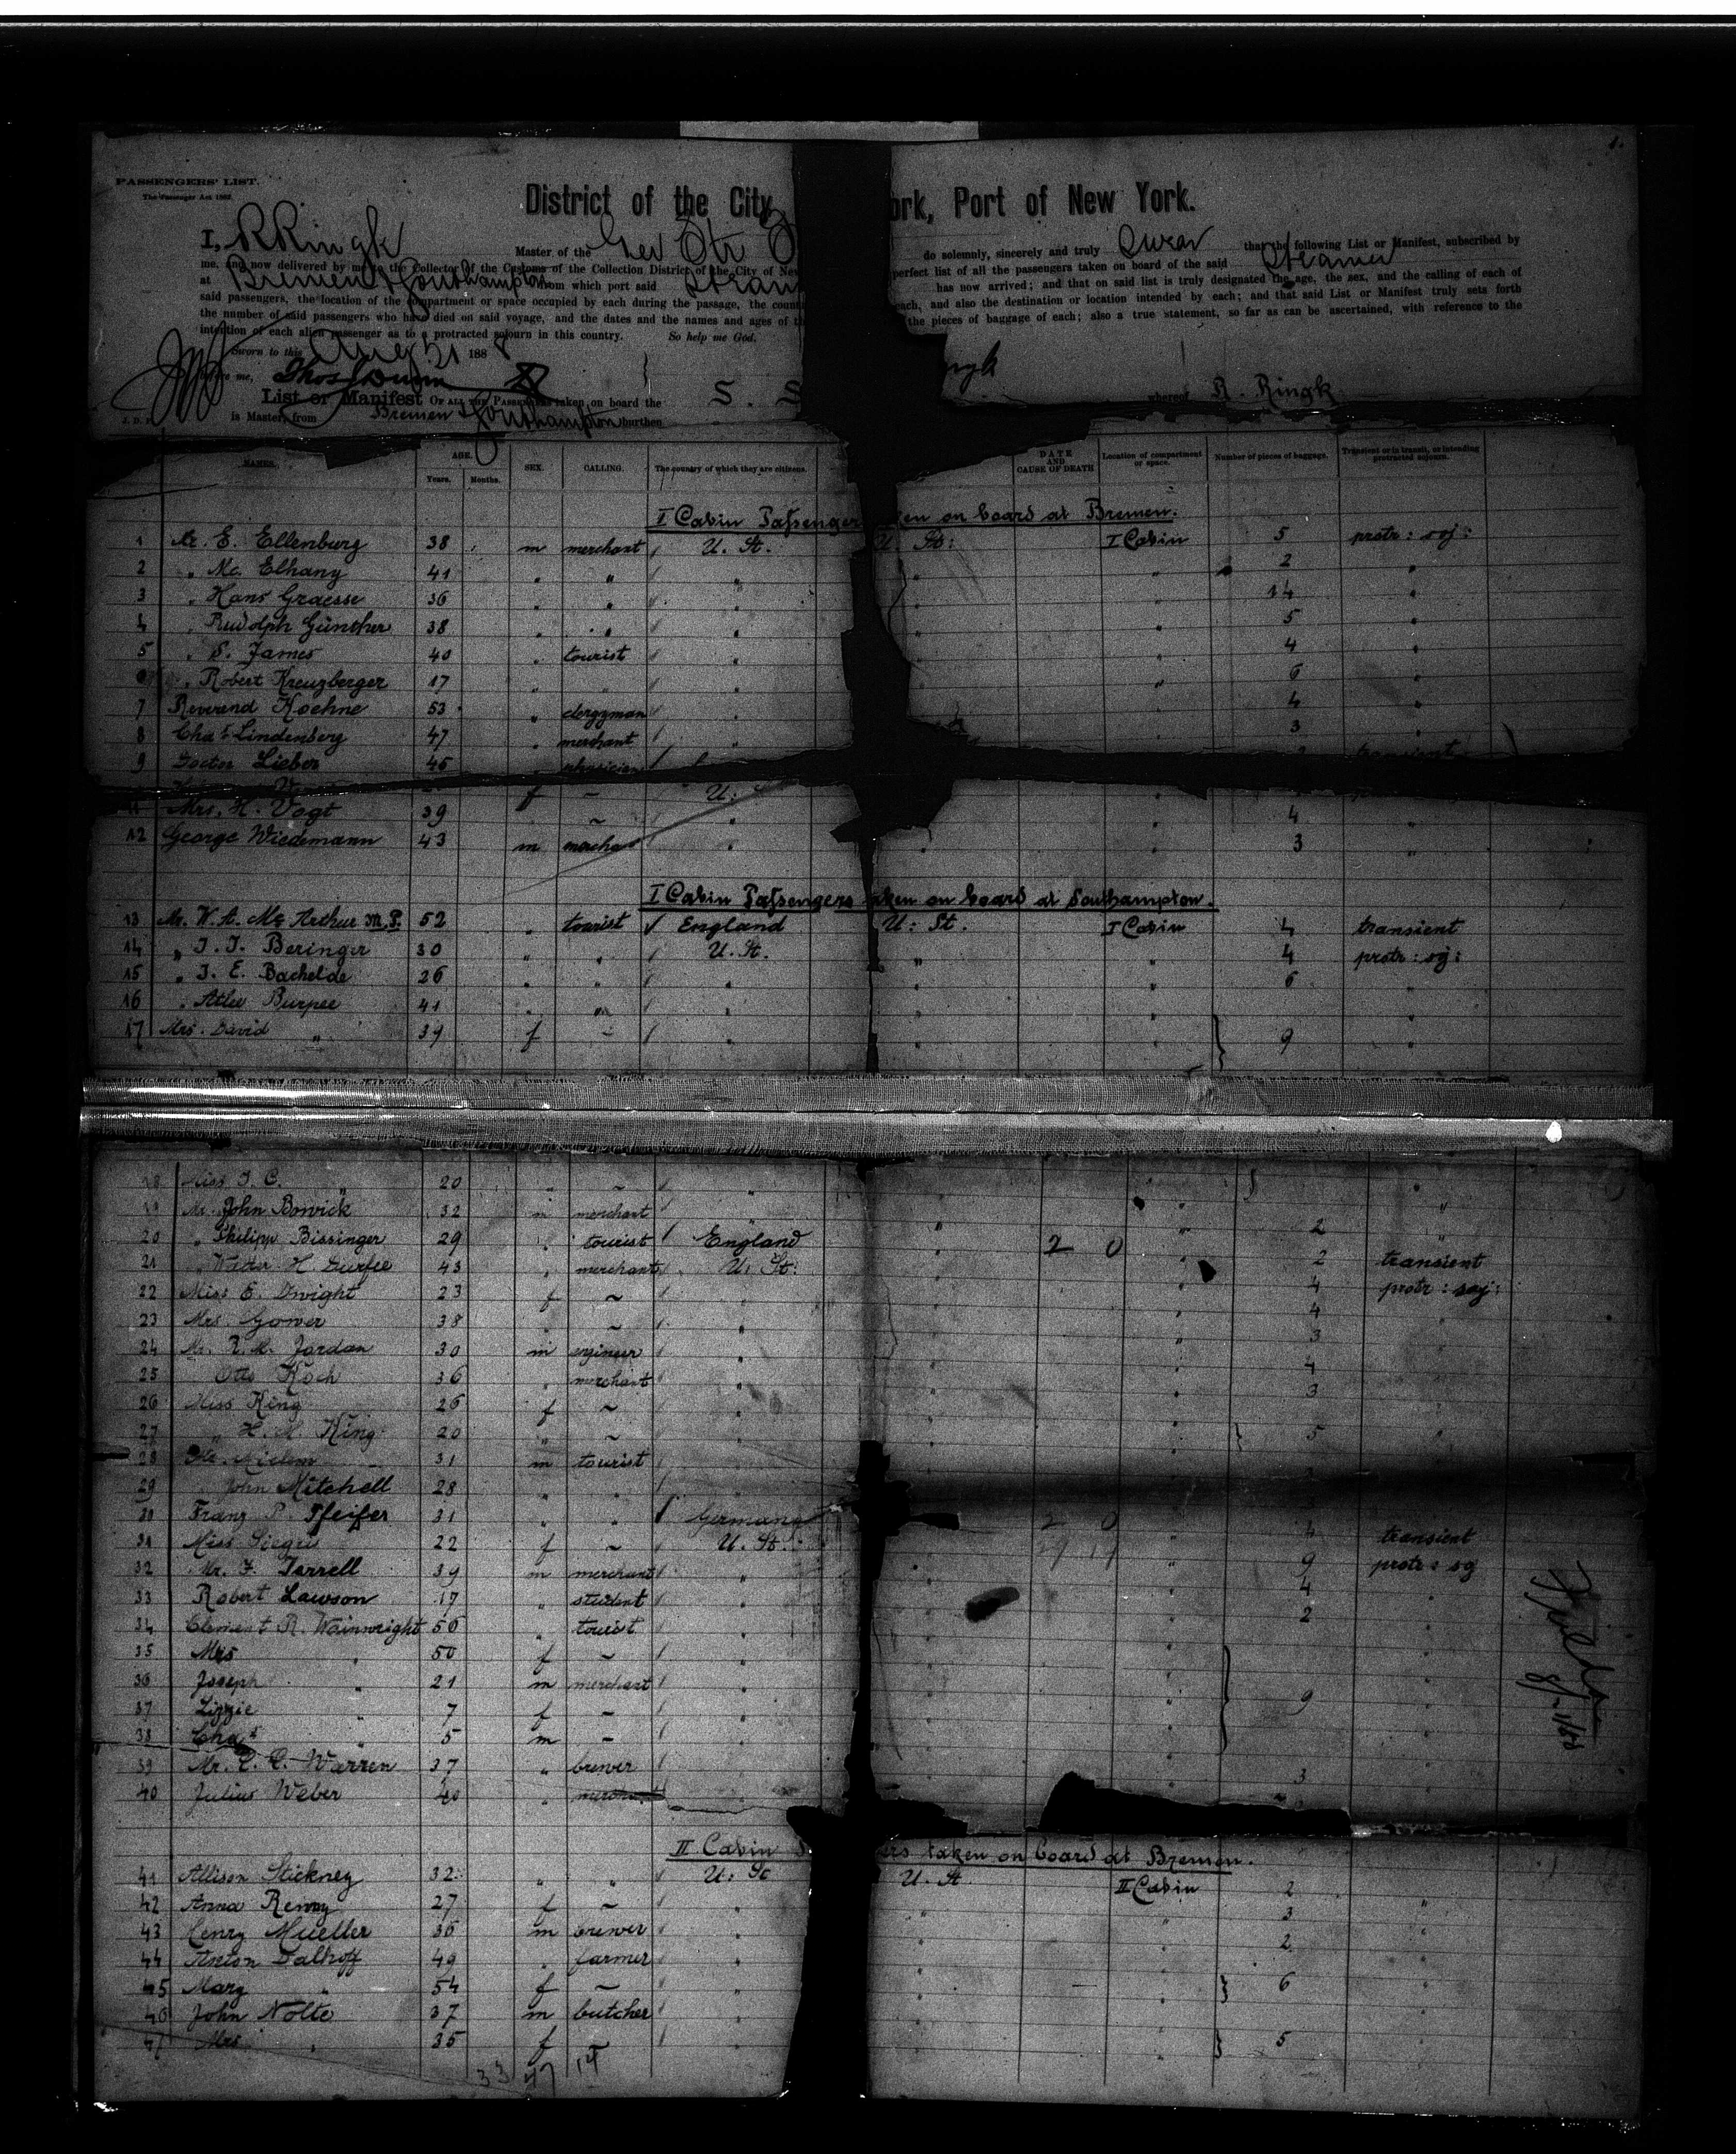 1.
PASSENGERS' LIST.
The Passenger Act 1882.
District of the City ork, Port of New York.
I, R Ringk Master of the Ger Str do solemnly, sincerely and truly Swear that the following List or Manifest, subscribed by
me, and now delivered by me to the Collector of the Customs of the Collection District of the City of New perfect list of all the passengers taken on board of the said Steamer
at Bremen & Southampton from which port said Steam has now arrived; and that on said list is truly designated the age, the sex, and the calling of each of
said passengers, the location of the compartment or space occupied by each during the passage, the count each, and also the destination or location intended by each; and that said List or Manifest truly sets forth
the number of said passengers who have died on said voyage, and the dates and the names and ages of th the pieces of baggage of each; also a true statement, so far as can be ascertained, with reference to the
intention of each alien passenger as to a protracted sojourn in this country. So help me God.
Sworn to this Aug 21 1888
me, Thos Dunn
List or Manifest OF ALL THE PASSENGERS taken on board the S. S whereof R. Ringk
is Master, from Bremen & Southampton burthen
NAMES. AGE. Years. Months. SEX. CALLING. The country of which they are citizens. DATE AND CAUSE OF DEATH Location of compartment or space. Number of pieces of baggage. Transient or in transit, or intending protracted sojourn.
I Cabin Passenger ken on board at Bremen.
1 Mr. E. Ellenburg 38 m merchant U. St. U. St: I Cabin 5 protr: soj:
2 " Mc. Elhany 41 " " " " " 2 "
3 " Hans Graesse 36 " " " " " 14 "
4 " Rudolph Günther 38 " " " " " 5 "
5 " S. James 40 " tourist " " " 4 "
6 " Robert Kreuzberger 17 " " " " " 6 "
7 Reverend Koehne 53 " clergyman " 4 "
8 Chas Lindenberg 47 " merchant " 3 "
9 Doctor Lieber 45 " physician transient
f ~ U.
11 Mrs. H. Vogt 39 " ~ " " 4 "
12 George Wiedemann 43 m merchant " " " 3 "
I Cabin Passengers taken on board at Southampton.
13 Mr. W. A. Mc Arthur M.P. 52 " tourist England U: St. I Cabin 4 transient
14 " J. J. Beringer 30 " " U. St. " " 4 protr: soj:
15 " J. E. Bachelde 26 " " " " " 6 "
16 " Atlee Burpee 41 " " " " " "
17 Mrs. David " 39 f ~ " " " 9 "
18 Miss J. C. " 20 " ~ " "
19 Mr. John Bowick 32 m merchant " " " 2 "
20 " Philipp Bissinger 29 " tourist England 2 0 2 transient
21 43 " merchant U. St: 4 protr: soj:
22 Miss E. Dwight 23 f ~ " " 4
23 Mrs. Gower 38 " ~ " " 3
24 Mr. R. M. Jordan 30 m engineer " " 4
25 Otto Koch 36 " merchant " " 3
26 Miss King 26 f ~ "
27 " H. M. King 20 " ~ " " 5 "
28 31 m tourist
29 " John Mitchell 28 " "
30 Franz P. Pfeifer 31 " " Germany 2 0 4 transient
31 Miss 22 f ~ U. St. 9 protr: soj
32 Mr. F. Terrell 39 m merchant " 4
33 Robert Lawson 17 " student " 2
34 Clement R. Wainwright 56 " tourist "
35 Mrs " 50 f ~ "
36 Joseph " 21 m merchant " 9 "
37 Lizzie " 7 f ~ "
38 Chas " 5 m ~ "
39 Mr. C. C. Warren 37 " brewer " 3
40 Julius Weber 40 " merchant
II Cabin ers taken on board at Bremen.
41 Allison Stickney 32 " " U: St U. St II Cabin 2 "
42 Anna 27 f ~ " " " 3 "
43 Henry Mueller 36 m brewer " " " 2 "
44 Anton Dalhoff 49 " farmer " "
45 Mary " 54 f ~ " " 6 "
46 John Nolte 37 m butcher " "
47 Mrs " 35 f " 5 "
33 47 14